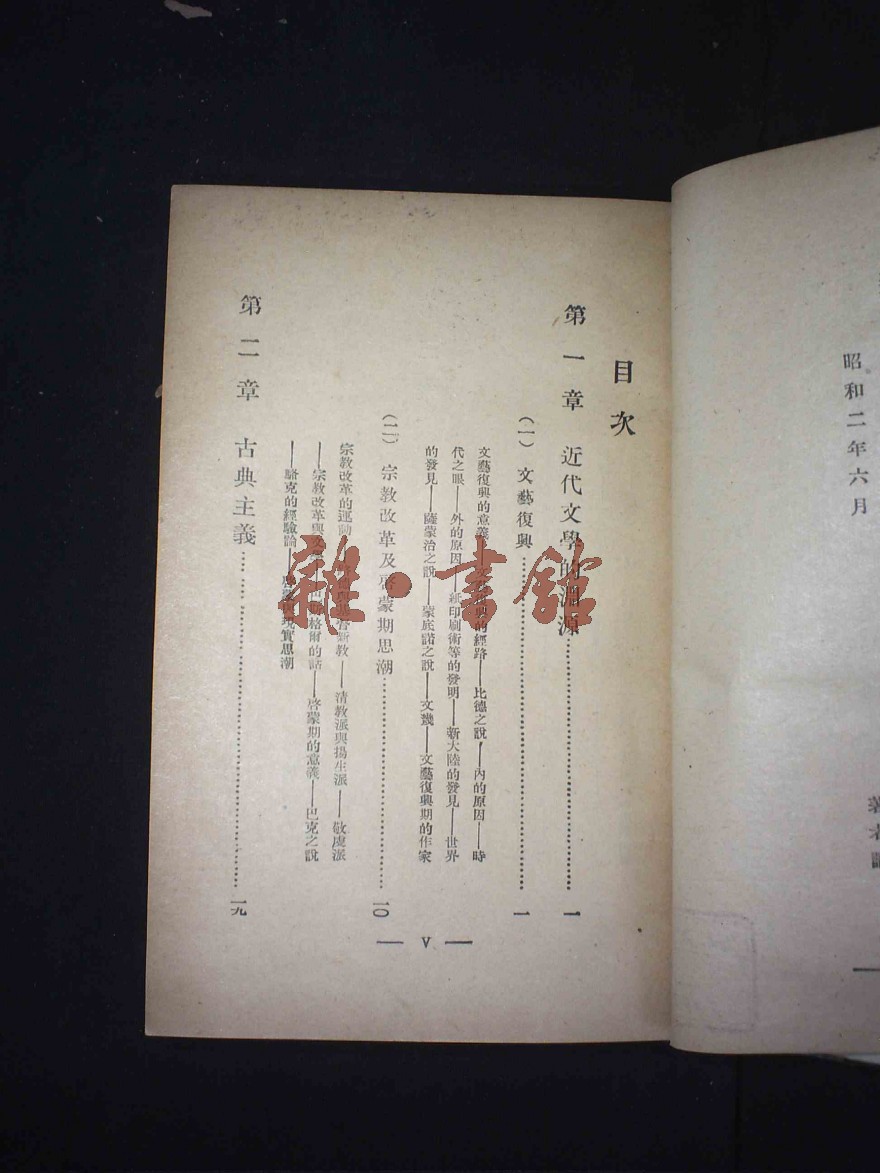 昭和二年六月
著者
目次
第一章 近代文學的淵源 一
(一) 文藝復興 一
文藝復興的意義 的經路——比德之說——內的原因——時
代之眼——外的原因——紙印刷術等的發明——新大陸的發見——世界
的發見——薩蒙治之說——蒙底諾之說——文畿——文藝復興期的作家
(二) 宗教改革及啓蒙期思潮 一〇
宗教改革的運動 新教——清教派與揚生派——敬虔派
——宗教改革與 格爾的話——啓蒙期的意義——巴克之說
——駱克的經驗論 現實思潮
第二章 古典主義 一九
— V —
雜·書館